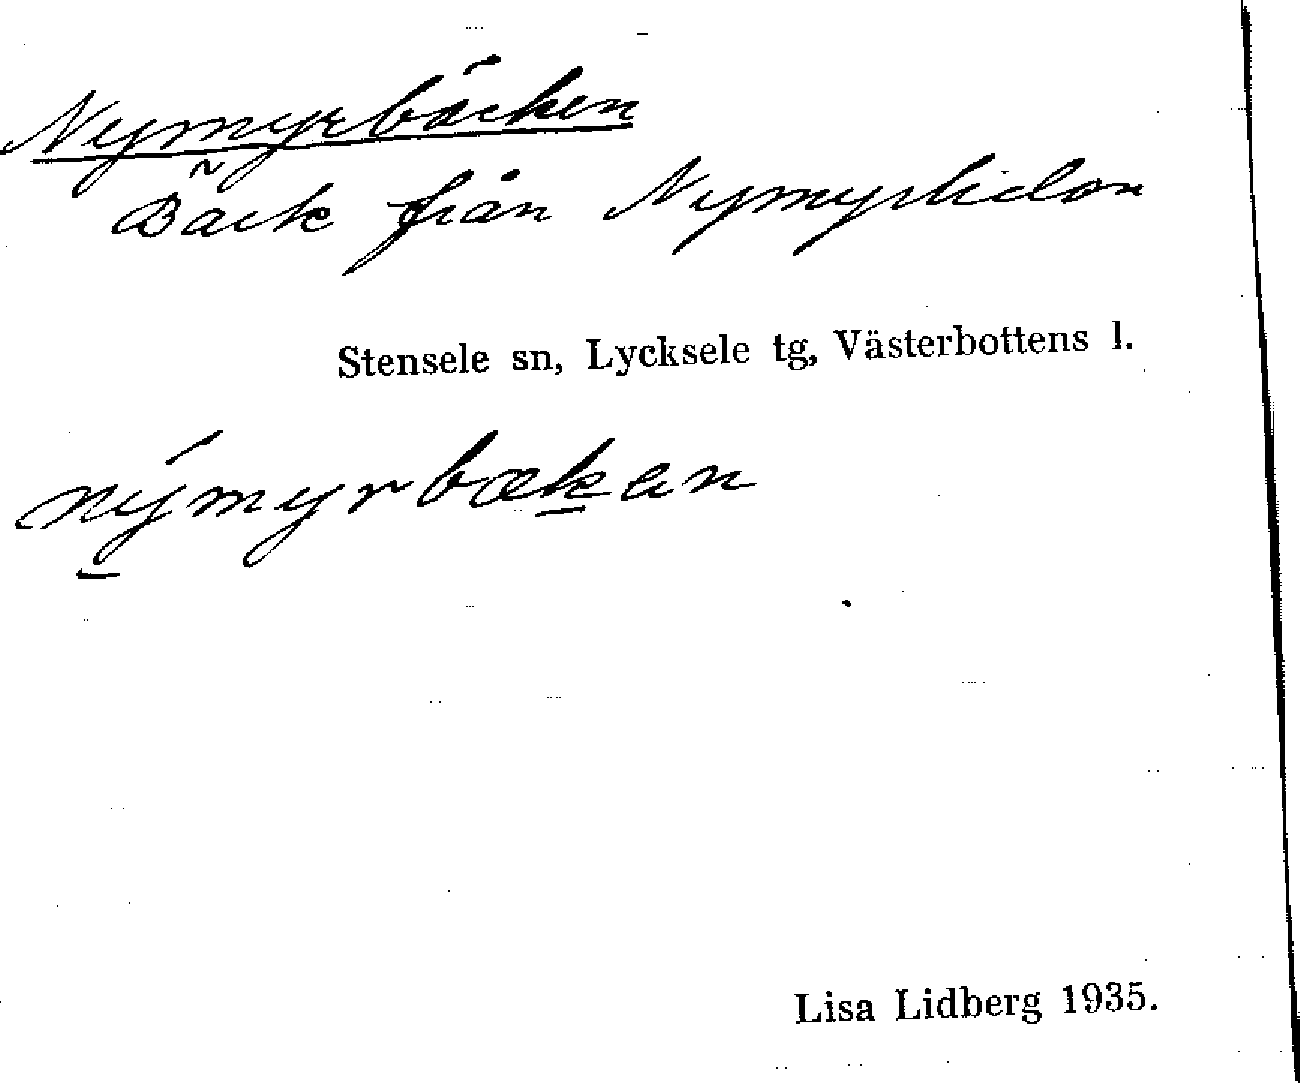 Nymyrbäcken
Bäck från Nymyrliden
Stensele sn, Lycksele tg, Västerbottens l.
nýmyrbækan
Lisa Lidberg 1935.